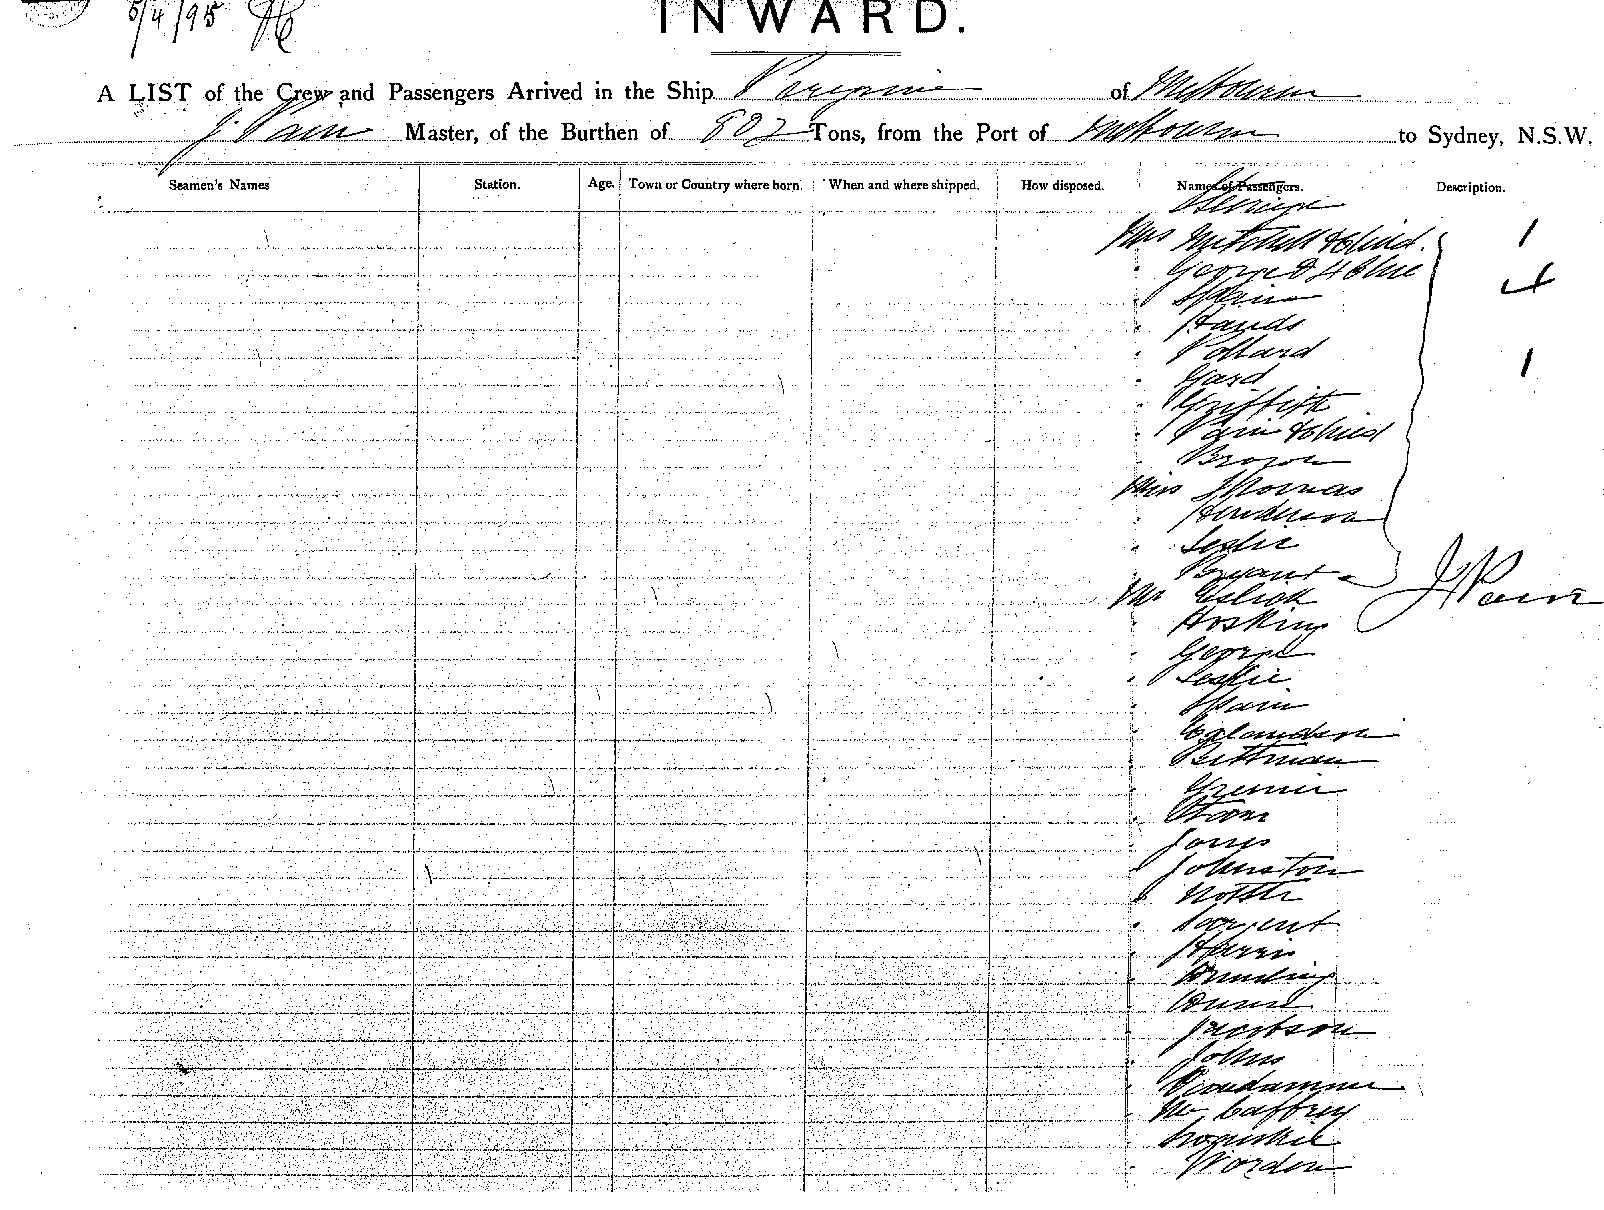 5/4/95
INWARD.
A LIST of the Crew and Passengers Arrived in the Ship Peregrine of Melbourne
J. Pain Master, of the Burthen of 802 Tons, from the Port of Melbourne to Sydney, N.S.W.
Seamen's Names Station. Age. Town or Country where born. When and where shipped. How disposed. Names of Passengers. Description.
Steerage
Mrs Mitchell & Child. 1
" George & 4 Chil 4
" Spain
" Hands
" Pollard 1
" Gard
" Griffith
" Pain & Child
" Brown
Miss Thomas
" Henderson
" Leslie
" Bryant
Mr J Pain
" Hosking
" George
" Leslie
" Spain
" Pittman
" Jones
" Johnston
" Sargent
" Harris
" Dunn
" Jacobson
" Johns
" Mc Caffrey
" Worden